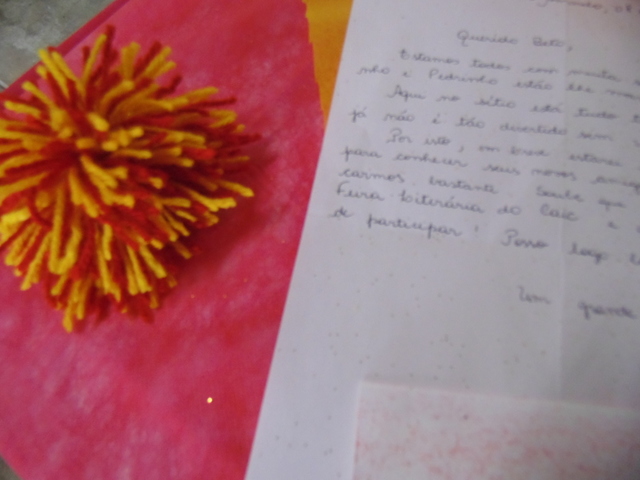 Querido Beto,
Estamos todos com muita
nho e Pedrinho estão lhe
Aqui no sítio está tudo
já não é tão divertido sem
Por isto, em breve estarei
para conhecer seus novos
carmos bastante. Soube que
Feira Literária do Caic e
de participar! Posso logo
Um grande